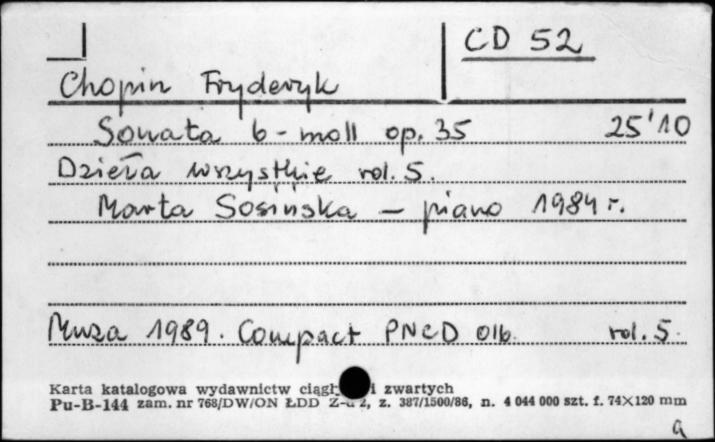 CD 52
Chopin Fryderyk
Sonata b-moll op. 35 25'10
Dzieła wszystkie vol. 5.
Marta Sosińska – piano 1984 r.
Muza 1989. Compact PNCD 016. vol. 5.
Karta katalogowa wydawnictw i zwartych
Pu-B-144 zam. nr 768/DW/ON ŁDD 2, z. 387/1500/86, n. 4 044 000 szt. f. 74×120 mm
a